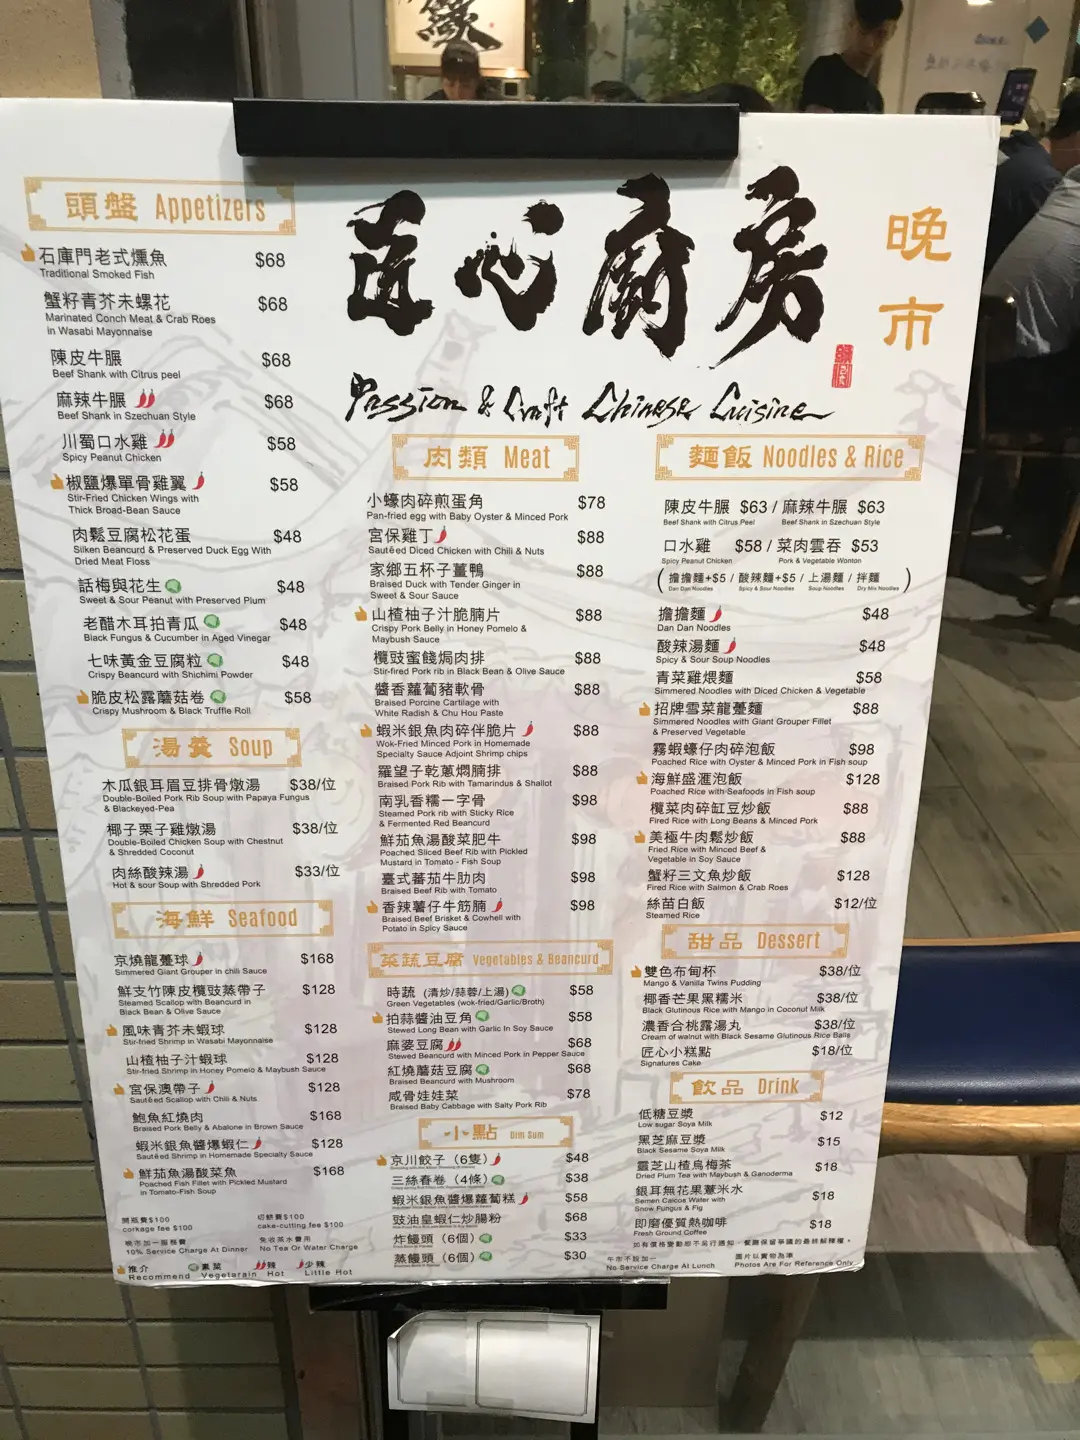 匠心廚房
晚市
Passion & Craft Chinese Cuisine
頭盤 Appetizers
石庫門老式燻魚 $68
Traditional Smoked Fish
蟹籽青芥末螺花 $68
Marinated Conch Meat & Crab Roes
in Wasabi Mayonnaise
陳皮牛𦟌 $68
Beef Shank with Citrus peel
麻辣牛𦟌 $68
Beef Shank in Szechuan Style
川蜀口水雞 $58
Spicy Peanut Chicken
椒鹽爆單骨雞翼 $58
Stir-Fried Chicken Wings with
Thick Broad-Bean Sauce
肉鬆豆腐松花蛋 $48
Silken Beancurd & Preserved Duck Egg With
Dried Meat Floss
話梅與花生 $48
Sweet & Sour Peanut with Preserved Plum
老醋木耳拍青瓜 $48
Black Fungus & Cucumber in Aged Vinegar
七味黃金豆腐粒 $48
Crispy Beancurd with Shichimi Powder
脆皮松露蘑菇卷 $58
Crispy Mushroom & Black Truffle Roll
湯羹 Soup
木瓜銀耳眉豆排骨燉湯 $38/位
Double-Boiled Pork Rib Soup with Papaya Fungus
& Blackeyed-Pea
椰子栗子雞燉湯 $38/位
Double-Boiled Chicken Soup with Chestnut
& Shredded Coconut
肉絲酸辣湯 $33/位
Hot & sour Soup with Shredded Pork
海鮮 Seafood
京燒龍躉球 $168
Simmered Giant Grouper in chili Sauce
鮮支竹陳皮欖豉蒸帶子 $128
Steamed Scallop with Beancurd in
Black Bean & Olive Sauce
風味青芥末蝦球 $128
Stir-fried Shrimp in Wasabi Mayonnaise
山楂柚子汁蝦球 $128
Stir-fried Shrimp in Honey Pomelo & Maybush Sauce
宮保澳帶子 $128
Sautéed Scallop with Chili & Nuts
鮑魚紅燒肉 $168
Braised Pork Belly & Abalone in Brown Sauce
蝦米銀魚醬爆蝦仁 $128
Sautéed Shrimp in Homemade Specialty Sauce
鮮茄魚湯酸菜魚 $168
Poached Fish Fillet with Pickled Mustard
in Tomato-Fish Soup
開瓶費$100 切餅費$100
corkage fee $100 cake-cutting fee $100
晚市加一服務費 免收茶水費用
10% Service Charge At Dinner No Tea Or Water Charge
推介 素菜 辣 少辣
Recommend Vegetarain Hot Little Hot
肉類 Meat
小蠔肉碎煎蛋角 $78
Pan-fried egg with Baby Oyster & Minced Pork
宮保雞丁 $88
Sautéed Diced Chicken with Chili & Nuts
家鄉五杯子薑鴨 $88
Braised Duck with Tender Ginger in
Sweet & Sour Sauce
山楂柚子汁脆腩片 $88
Crispy Pork Belly in Honey Pomelo &
Maybush Sauce
欖豉蜜餞焗肉排 $88
Stir-fired Pork rib in Black Bean & Olive Sauce
醬香蘿蔔豬軟骨 $88
Braised Porcine Cartilage with
White Radish & Chu Hou Paste
蝦米銀魚肉碎伴脆片 $88
Wok-Fried Minced Pork in Homemade
Specialty Sauce Adjoint Shrimp chips
羅望子乾蔥燜腩排 $88
Braised Pork Rib with Tamarindus & Shallot
南乳香糯一字骨 $98
Steamed Pork rib with Sticky Rice
& Fermented Red Beancurd
鮮茄魚湯酸菜肥牛 $98
Poached Sliced Beef Rib with Pickled
Mustard in Tomato - Fish Soup
臺式蕃茄牛肋肉 $98
Braised Beef Rib with Tomato
香辣薯仔牛筋腩 $98
Braised Beef Brisket & Cowhell with
Potato in Spicy Sauce
菜蔬豆腐 Vegetables & Beancurd
時蔬 (清炒/蒜蓉/上湯) $58
Green Vegetables (wok-fried/Garlic/Broth)
拍蒜醬油豆角 $58
Stewed Long Bean with Garlic In Soy Sauce
麻婆豆腐 $68
Stewed Beancurd with Minced Pork in Pepper Sauce
紅燒蘑菇豆腐 $68
Braised Beancurd with Mushroom
咸骨娃娃菜 $78
Braised Baby Cabbage with Salty Pork Rib
小點 Dim Sum
京川餃子（6隻） $48
三絲春卷（4條） $38
蝦米銀魚醬爆蘿蔔糕 $58
豉油皇蝦仁炒腸粉 $68
炸饅頭（6個） $33
蒸饅頭（6個） $30
麵飯 Noodles & Rice
陳皮牛𦟌 $63 / 麻辣牛𦟌 $63
Beef Shank with Citrus Peel Beef Shank in Szechuan Style
口水雞 $58 / 菜肉雲吞 $53
Spicy Peanut Chicken Pork & Vegetable Wonton
(擔擔麵+$5 / 酸辣麵+$5 / 上湯麵 / 拌麵)
Dan Dan Noodles Spicy & Sour Noodles Soup Noodles Dry Mix Noodles
擔擔麵 $48
Dan Dan Noodles
酸辣湯麵 $48
Spicy & Sour Soup Noodles
青菜雞煨麵 $58
Simmered Noodles with Diced Chicken & Vegetable
招牌雪菜龍躉麵 $88
Simmered Noodles with Giant Grouper Fillet
& Preserved Vegetable
霧蝦蠔仔肉碎泡飯 $98
Poached Rice with Oyster & Minced Pork in Fish soup
海鮮盛滙泡飯 $128
Poached Rice with Seafoods in Fish soup
欖菜肉碎缸豆炒飯 $88
Fired Rice with Long Beans & Minced Pork
美極牛肉鬆炒飯 $88
Fried Rice with Minced Beef &
Vegetable in Soy Sauce
蟹籽三文魚炒飯 $128
Fired Rice with Salmon & Crab Roes
絲苗白飯 $12/位
Steamed Rice
甜品 Dessert
雙色布甸杯 $38/位
Mango & Vanilla Twins Pudding
椰香芒果黑糯米 $38/位
Black Glutinous Rice with Mango in Coconut Milk
濃香合桃露湯丸 $38/位
Cream of walnut with Black Sesame Glutinous Rice Balls
匠心小糕點 $18/位
Signatures Cake
飲品 Drink
低糖豆漿 $12
Low sugar Soya Milk
黑芝麻豆漿 $15
Black Sesame Soya Milk
靈芝山楂烏梅茶 $18
Dried Plum Tea with Maybush & Ganoderma
銀耳無花果薏米水 $18
Semen Caicos Water with
Snow Fungus & Fig
即磨優質熱咖啡 $18
Fresh Ground Coffee
如有價格變動恕不另行通知，餐廳保留爭議的最終解釋權。
午市不設加一 圖片以實物為準
No Service Charge At Lunch Photos Are For Reference Only